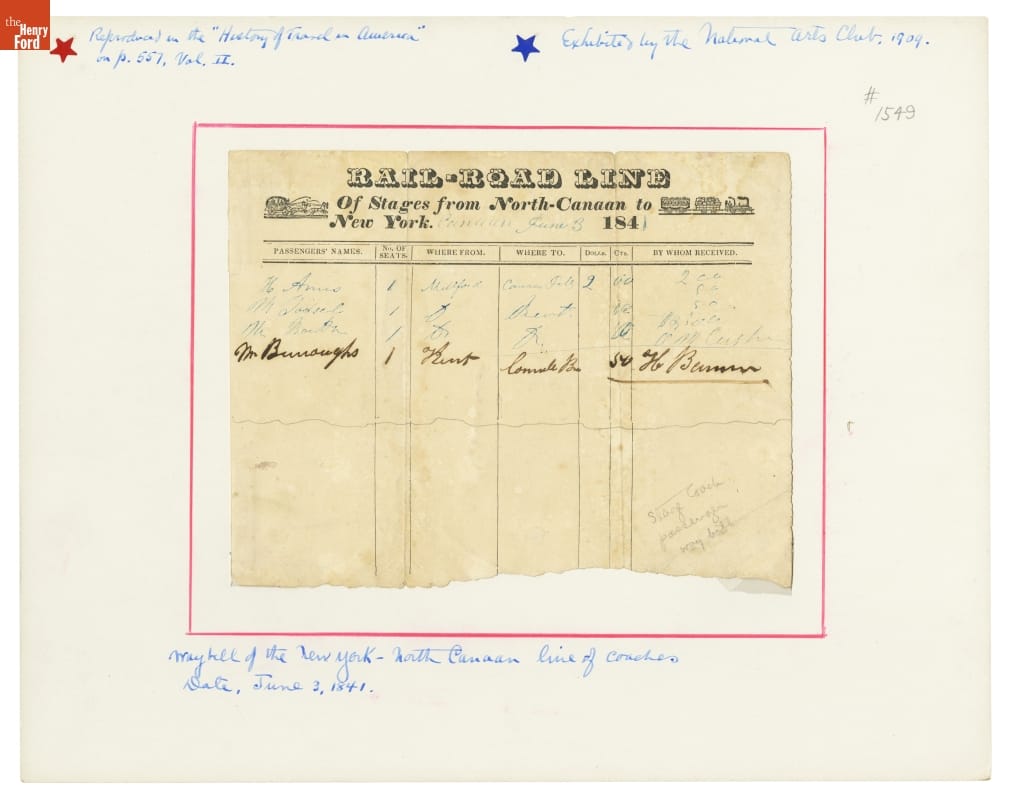 the
Henry
Ford
Reproduced in the "History of Travel in America"
on p. 557, Vol. II.
Exhibited by the National Arts Club, 1909.
#
1549
RAIL-ROAD LINE
Of Stages from North-Canaan to
New York. Canaan June 3 1841
PASSENGERS' NAMES. No. OF SEATS. WHERE FROM. WHERE TO. Dolls. Cts. BY WHOM RECEIVED.
H 1 Millford Canaan 2 00 2 00
Mr 1
Mr 1
Mr Burroughs 1 Kent 50 H
Stage Coach
passenger
way bill
Waybill of the New York - North Canaan line of coaches
Date, June 3, 1841.